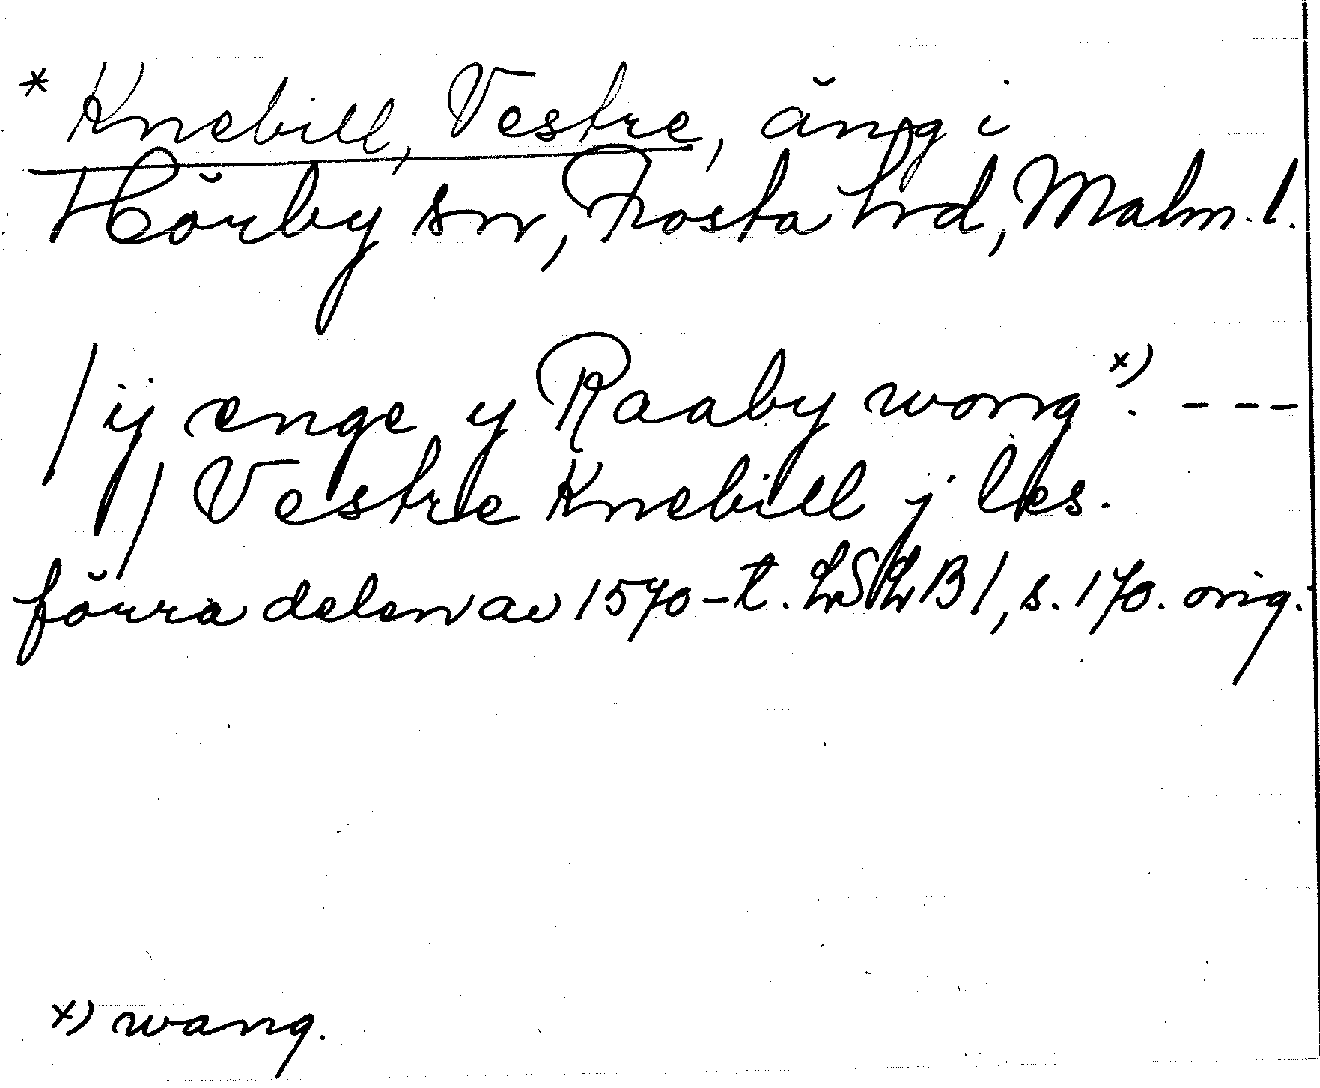 * Knebill, Vestre, äng i
Hörby sn, Frosta hd, Malm. l.
/ ij enge y Raaby wong x). ---
/ Vestre Knebill j les.
förra delen av 1570-t. LSLB 1, s. 170. orig.
x) wang.